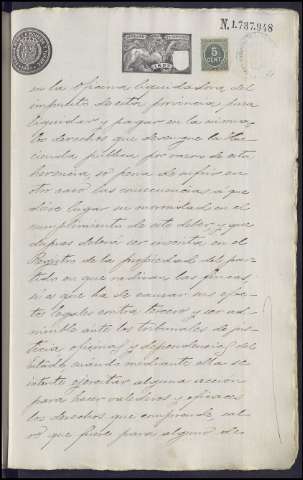 N.1.787.948
5
CENT.
en la oficina liquidadora del
impuesto de esta provincia, para
liquidar y pagar en la misma
los derechos que devengue la Ha-
cienda pública por razon de esta
herencia, so pena de sufrir en
otro caso las consecuencias a que
diese lugar su morosidad en el
cumplimiento de este deber; y que
despues deberá ser inscrita en el
Registro de la propiedad del par-
tido en que radican las fincas,
si es que ha de causar sus efec-
tos legales contra tercero y ser ad-
misible ante los tribunales de jus-
ticia, oficinas y dependencias del
Estado, cuando mediante ella se
intente ejercitar alguna accion
para hacer valederos y eficaces
los derechos que comprende, sal-
vo que fuere para alguno de